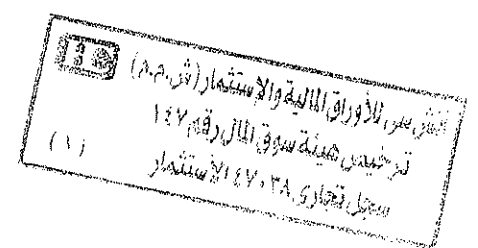 إتش سى للأوراق المالية والإستثمار (ش.م.م)
ترخيص هيئة سوق المال رقم ١٤٧
سجل تجارى ١٤٧٠٣٨ الأستثمار
(١)